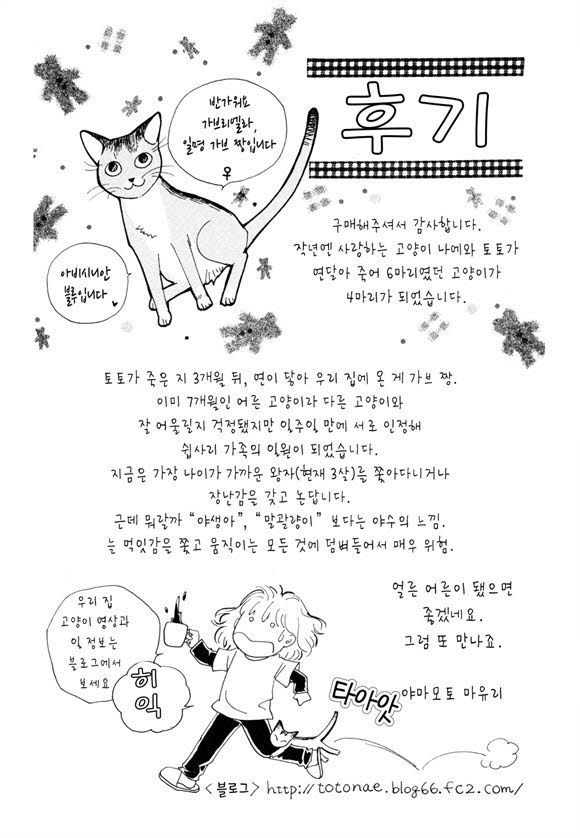 후기
반가워요
가브리엘라,
일명 가브 짱입니다
♀
아비시니안
블루입니다
구매해주셔서 감사합니다.
작년엔 사랑하는 고양이 나에와 토토가
연달아 죽어 6마리였던 고양이가
4마리가 되었습니다.
토토가 죽은 지 3개월 뒤, 연이 닿아 우리 집에 온 게 가브 짱.
이미 7개월인 어른 고양이라 다른 고양이와
잘 어울릴지 걱정됐지만 일주일 만에 서로 인정해
쉽사리 가족의 일원이 되었습니다.
지금은 가장 나이가 가까운 왕자(현재 3살)를 쫓아다니거나
장난감을 갖고 논답니다.
근데 뭐랄까 "야생아", "말괄량이" 보다는 야수의 느낌.
늘 먹잇감을 쫓고 움직이는 모든 것에 덤벼들어서 매우 위험.
얼른 어른이 됐으면
좋겠네요.
그럼 또 만나죠.
야마모토 마유리
우리 집
고양이 영상과
일 정보는
블로그에서
보세요
히익
타아앗
<블로그> http://totonae.blog66.fc2.com/